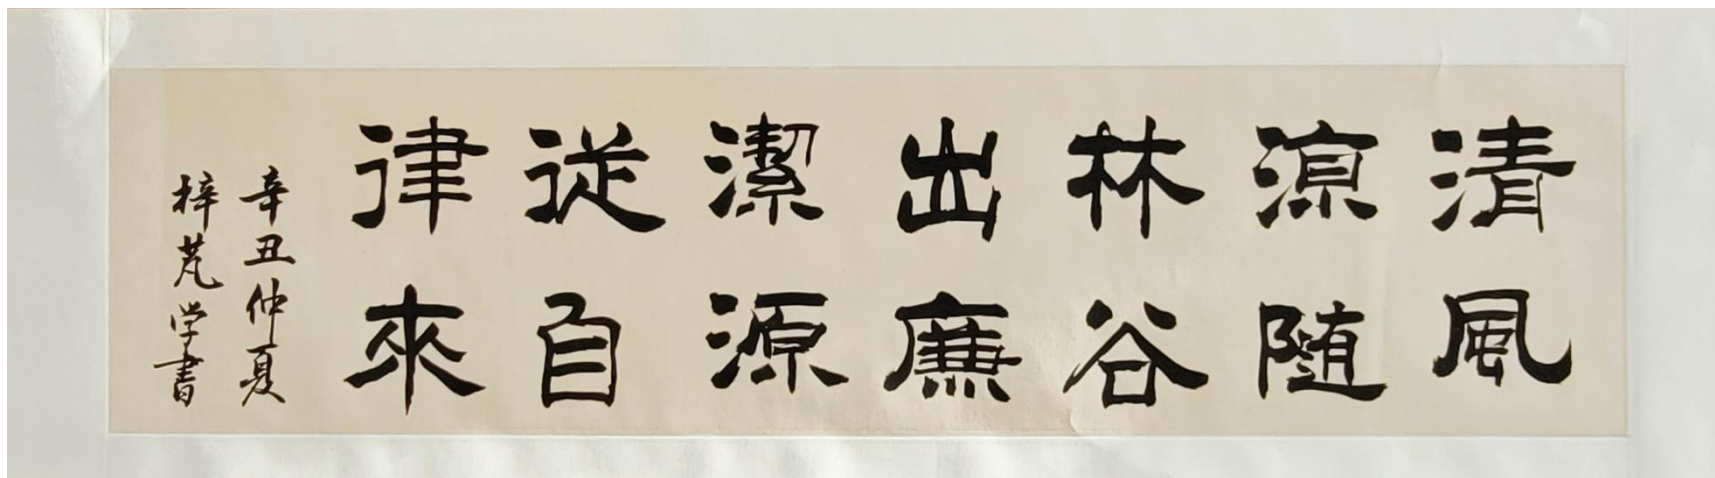 清風
涼随
林谷
出廉
潔源
従自
律來
辛丑仲夏
梓芃学書